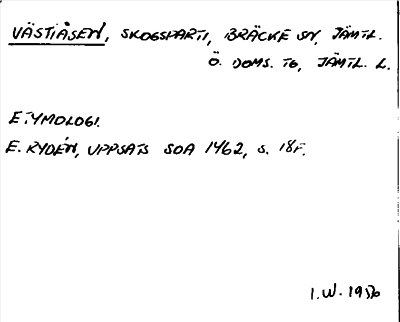 VÄSTIÅSEN, SKOGSPARTI, BRÄCKE SN, JÄMTL.
Ö. DOMS. TG, JÄMTL. L.
ETYMOLOGI.
E. RYDÉN, UPPSATS SOA 1462, S. 18F.
I.W. 1950